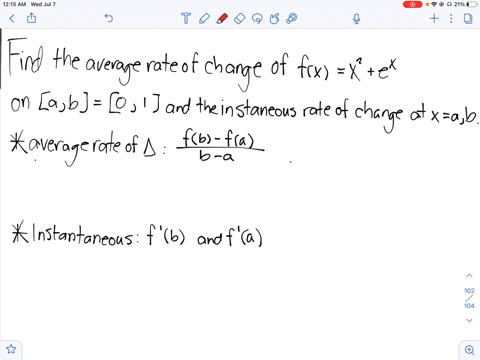 12:15 AM Wed Jul 7
21%
Find the average rate of change of f(x) = x² + eˣ
on [a,b] = [0, 1] and the instaneous rate of change at x=a,b.
* average rate of Δ: f(b) - f(a)
b - a
* Instantaneous: f'(b) and f'(a)
102
/
104